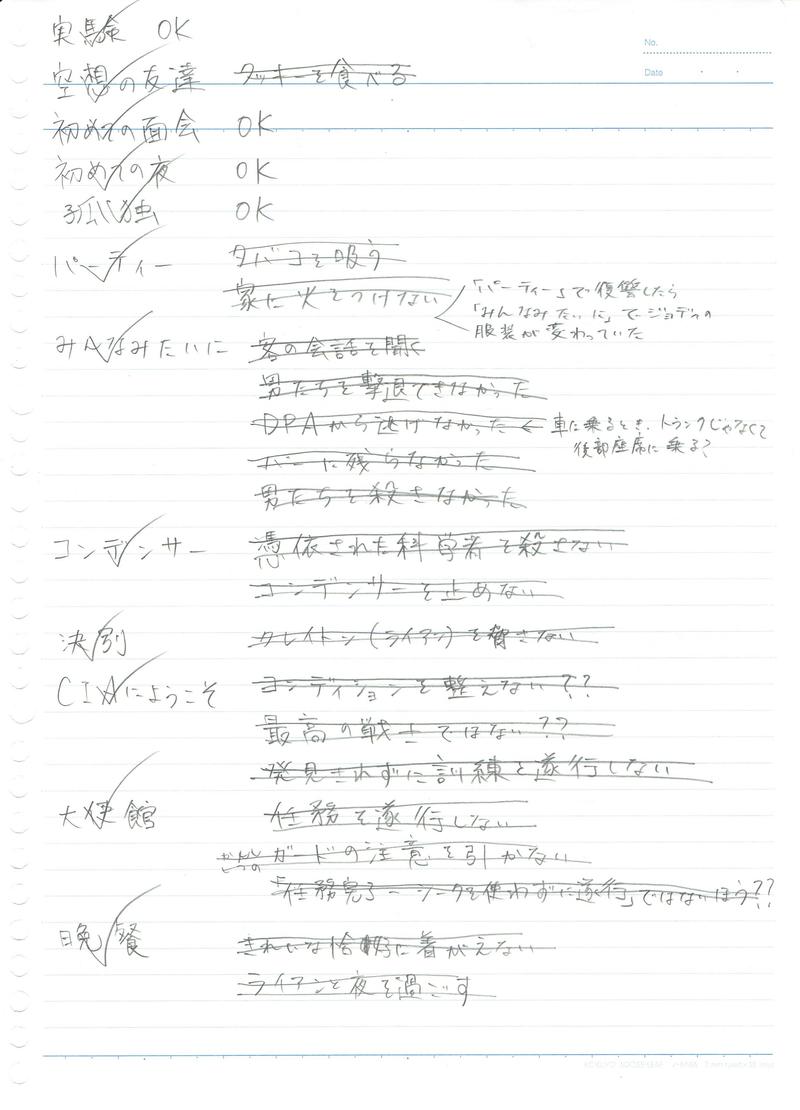 No.
Date
実験 OK
空想の友達 クッキーを食べる
初めての面会 OK
初めての夜 OK
孤独 OK
パーティー タバコを吸う
家に火をつけない 「パーティー」で復讐したら
「みんなみたいに」でジョディの
服装が変わっていた
みんなみたいに 客の会話を聞く
男たちを撃退できなかった
DPAから逃げなかった ← 車に乗るとき、トランクじゃなくて
後部座席に乗る?
バーに残らなかった
男たちを殺さなかった
コンデンサー 憑依された科学者を殺さない
コンデンサーを止めない
決別 クレイトン(ライアン)を脅さない
CIAにようこそ コンディションを整えない??
最高の戦士ではない??
発見されずに訓練を遂行しない
大使館 任務を遂行しない
ガードの注意を引かない
「任務完了-シークを使わずに遂行」ではないほう??
晩餐 きれいな恰好に着がえない
ライアンと夜を過ごす